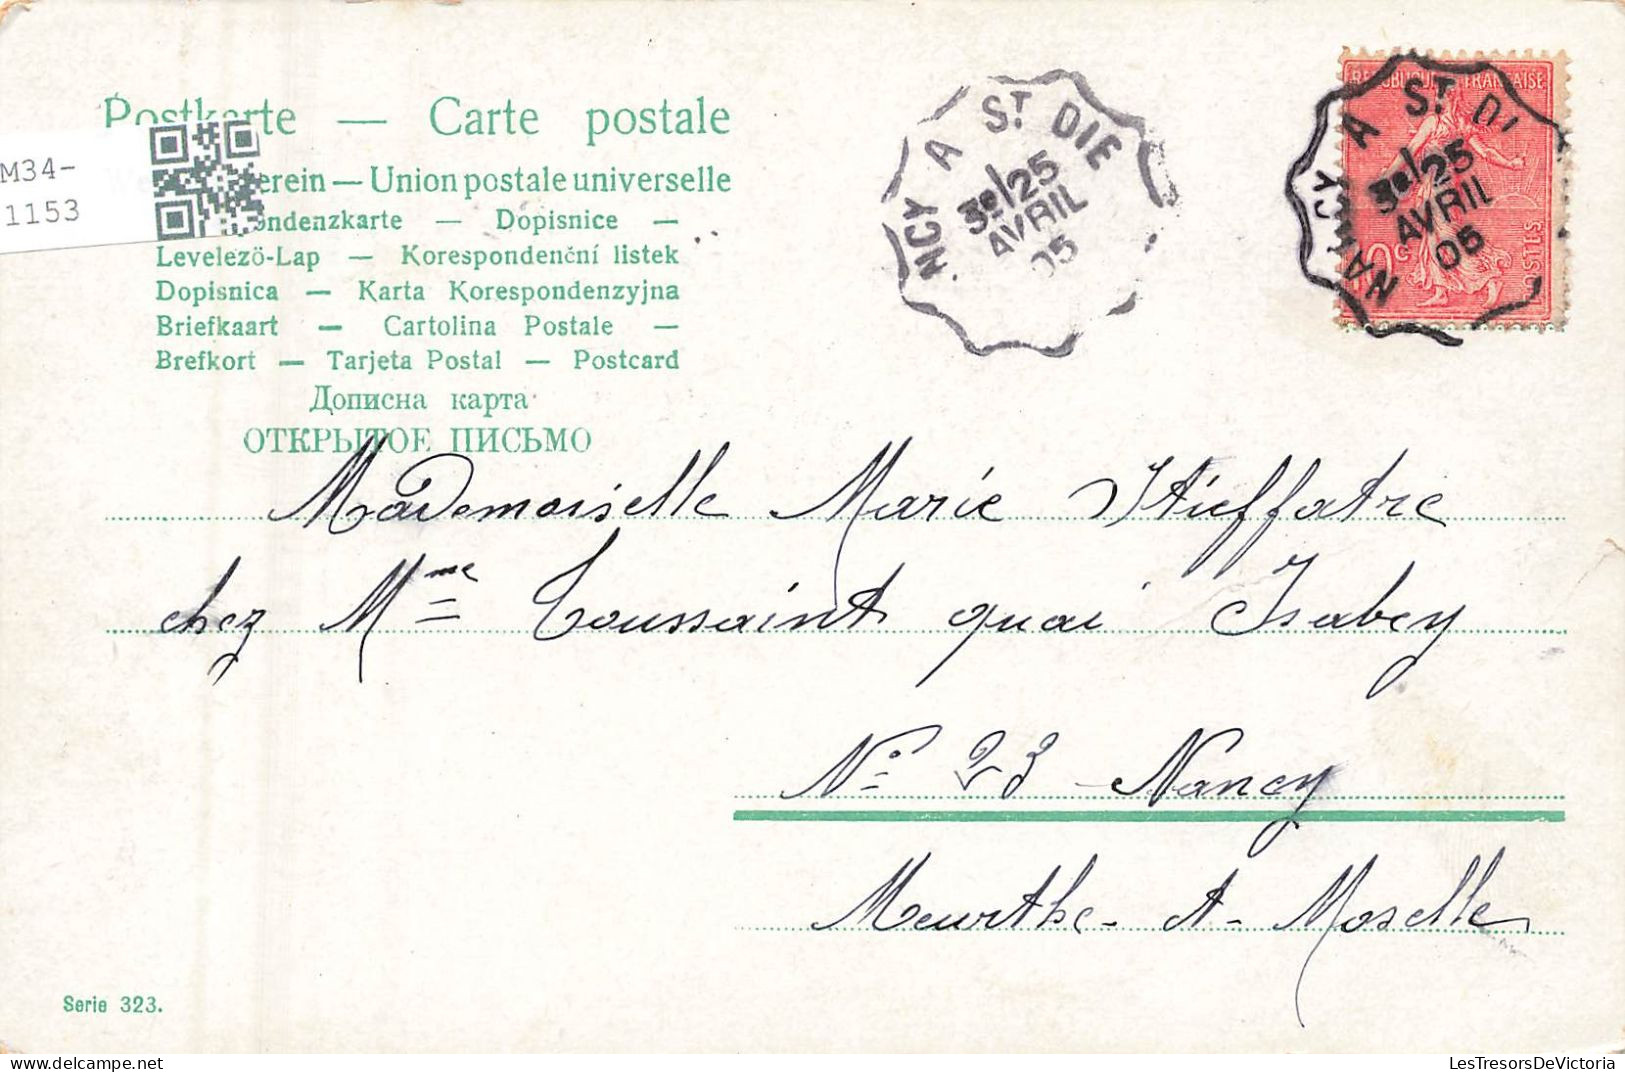 Postkarte — Carte postale
M34-
1153
erein — Union postale universelle
ondenzkarte — Dopisnice —
Levelezö-Lap — Korespondenční listek
Dopisnica — Karta Korespondenzyjna
Briefkaart — Cartolina Postale —
Brefkort — Tarjeta Postal — Postcard
Дописна карта
ОТКРЫТОЕ ПИСЬМО
NCY A ST DIE
3e/25
AVRIL
05
REPUBLIQUE FRANÇAISE
NANCY A ST DI
3e/25
AVRIL
05
Mademoiselle Marie
chez Mme Toussaint quai Isabey
No 23 Nancy
Meurthe-et-Moselle
Serie 323.
LesTresorsDeVictoria